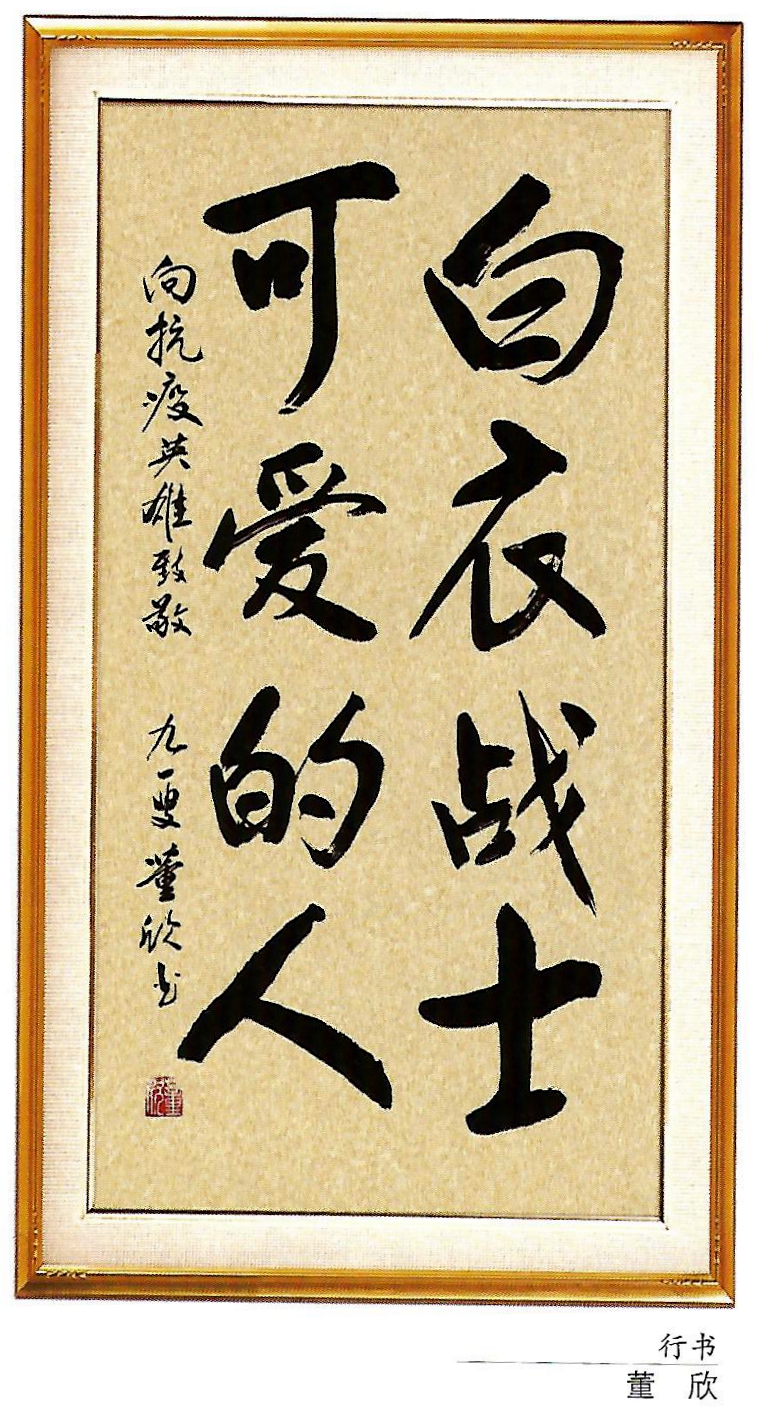 白衣战士
可爱的人
向抗疫英雄致敬 九一叟董欣书
行书
董 欣